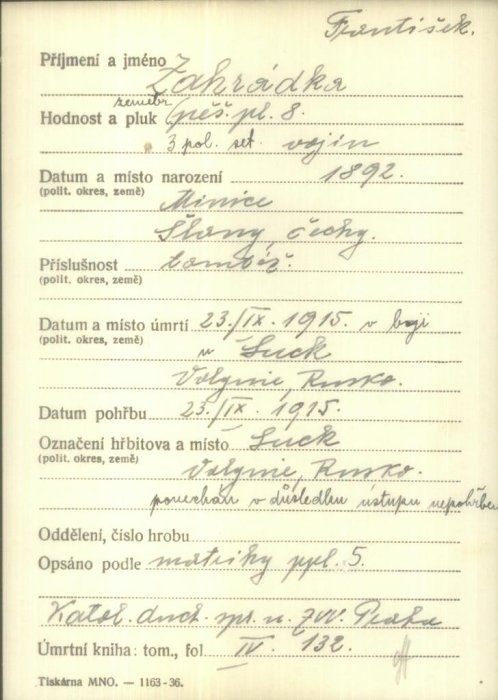 František.
Příjmení a jméno Zahrádka
zeměbr.
Hodnost a pluk pěš. pl. 8.
3 pol. set. vojín
Datum a místo narození 1892.
(polit. okres, země)
Minice
Slaný, Čechy.
Příslušnost tamtéž.
(polit. okres, země)
Datum a místo úmrtí 23./IX. 1915. v boji
(polit. okres, země)
u Luck
Volynie, Rusko.
Datum pohřbu 23./IX. 1915.
Označení hřbitova a místo Luck
(polit. okres, země)
Volynie, Rusko.
ponechán v důsledku ústupu nepohřben
Oddělení, číslo hrobu
Opsáno podle matriky ppl. 5.
Katol. duch. spr. u ZVV. Praha
Úmrtní kniha: tom., fol. IV. 132.
Tiskárna MNO. — 1163-36.